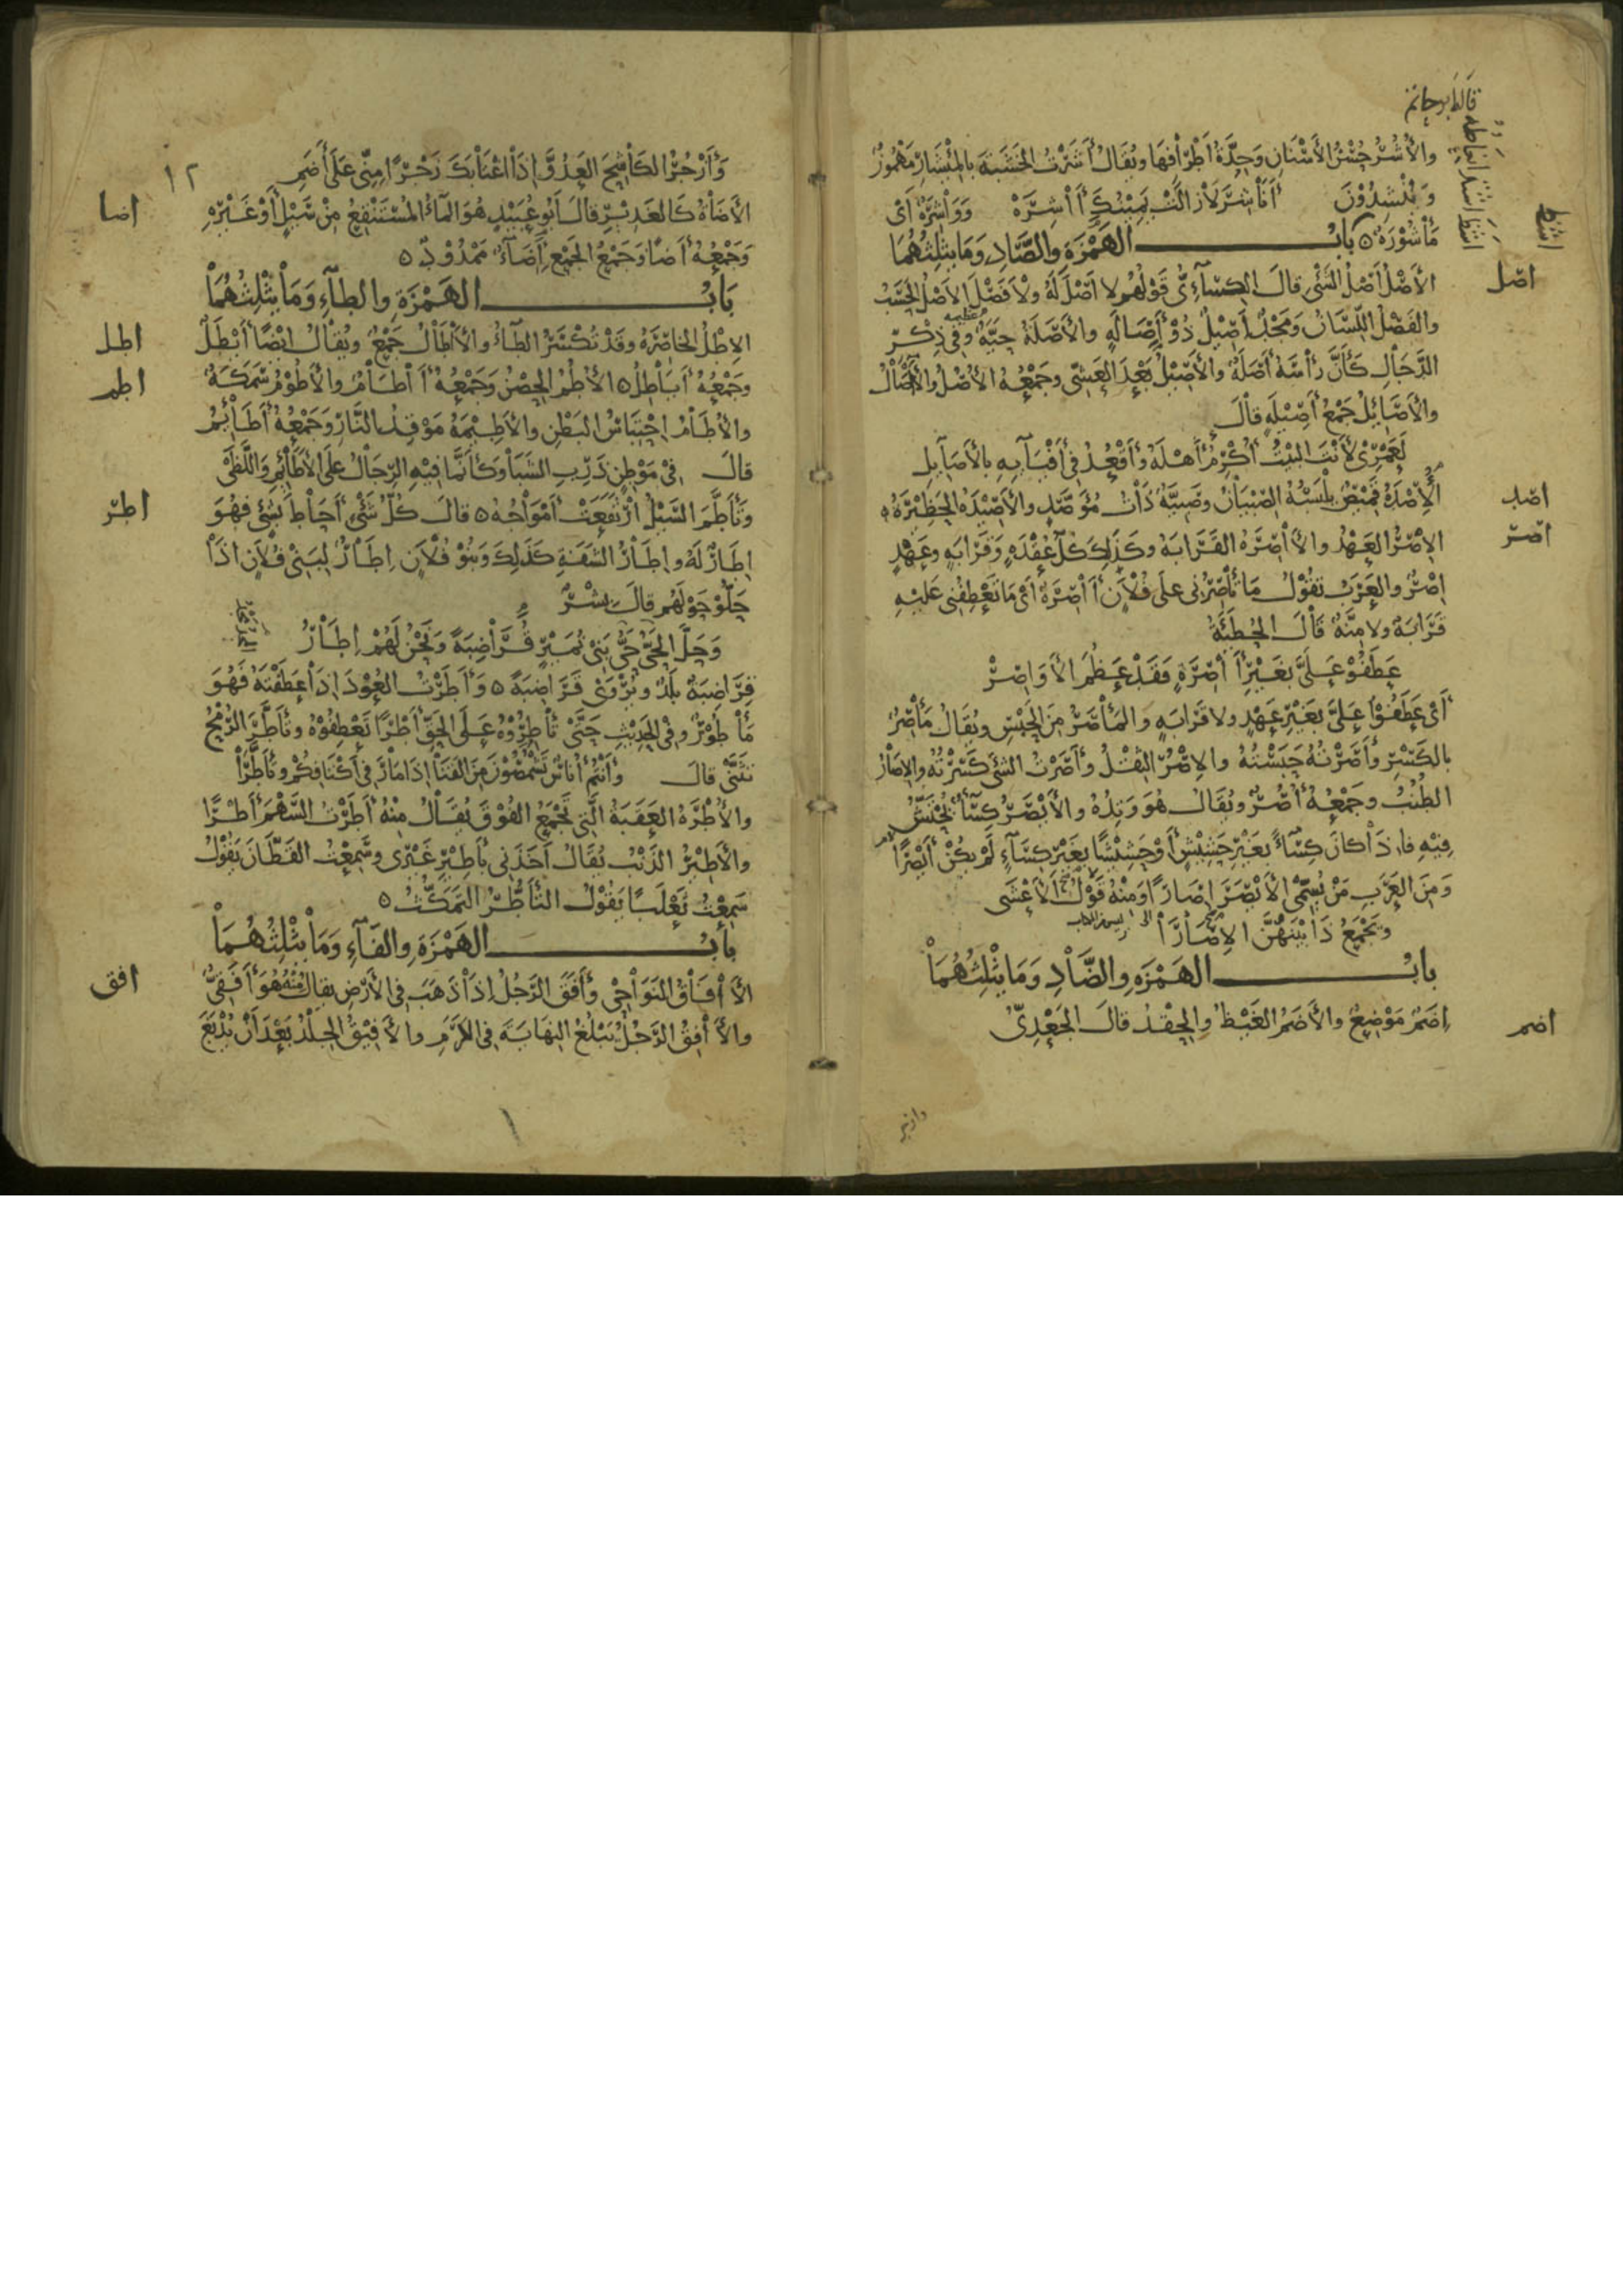 قال ابو حاتم
والأُشُرُ حُسْنُ الأَسْنَانِ وَحِدَّةُ أَطْرَافِهَا ويُقَالُ أَشَرْتُ الخَشَبَةَ بِالمِئْشَارِ مَهْمُوزٌ
وَيُنْشِدُوْنَ أَنَاشِرَ لَازَالَتْ يَمِيْنُكَ آشِرَهْ وَوَاشِرَةٌ أَىْ
مَأْشُوْرَةٌ ه بابُ الهَمْزَةِ والصَّادِ وَمَا يَثْلِثُهُمَا
اصل
الأَصْلُ أَصْلُ الشَّئْ قالَ الكِسَآءِىُّ فى قَوْلُهُم لا اَصْلَ لَهُ ولَا فَصْلَ الأَصْلُ الحَسَبُ
والفَصْلُ اللِّسَانُ وَمَجْدٌ أَصِيْلٌ ذُوْ أَصَالَةٍ والأَصَلَةُ حَيَّةٌ عَظِيمه وَفِى ذِكْرِ
الدَّجَّالِ كَأَنَّ رَأْسَهُ أَصَلَةٌ والأَصِيْلُ بَعْدَ العَشِىِّ وجَمْعُهُ الأُصُلُ والآصَالُ
والأَصَايِلُ جَمْعُ أَصِيْلَةٍ قالَ
لَعَمْرِىْ لَأَنْتَ البَيْتُ أُكْرِمُ أَهْلَهُ وَأَقْعُدُ فِى أَفْيَآيِهِ بِالأَصَآيِلِ
اصد
الأُصْدَةُ قَمِيْصٌ يَلْبَسُهُ الصِّبْيَانُ وصَبِيَّةٌ ذَاتُ مُؤَصَّدٍ والأَصِيْدَةُ الحَظِيْرَةُ ه
اصر
الإِصْرُ العَهْدُ والآصِرَةُ القَرَابَةُ وكَذَلِكَ كُلُّ عُقْدَةٍ وَقَرَابَةٍ وعَهْدٍ
إِصْرٌ والعَرَبُ تَقُوْلُ مَا تَأْصِرُنِى عَلَى فُلَانٍ آصِرَةٌ أَىْ مَا تَعْطِفُنِى عَلَيْهِ
قَرَابَةٌ ولا مِنَّةٌ قَالَ الحُطَيْئَةُ
عَطَفُوْ عَلَىَّ بِغَيْرِ آصِرَةٍ فَقَدْ عَظُمَ الأَوَاصِرْ
أَىْ عَطَفُوْا عَلَىَّ بِغَيْرِ عَهْدٍ ولا قَرَابَةٍ والمَأْصَرُ مِنَ الحَبْسِ ويُقَالُ مَأْصِرٌ
بالكَسْرِ وأَصَرْتُهُ حَبَسْتُهُ والإِصْرُ الثِّقْلُ وأَصَرْتُ الشَئَ كَسَرْتُهُ والإِصَارُ
الطُنُبُ وجَمْعُهُ أُصُرٌ ويُقَالُ هُوَ وَتِدُهُ والأَيْصَرُ كِسَآءٌ يُحْتَشُّ
فِيْهِ فإِذَا كانَ كِسَآءً بِغَيْرِ حَشِيْشٍ أَوْ حَشِيْشًا بِغَيْرِ كِسَآءٍ لَمْ يَكُنْ أَيْصَرًا
وَمِنَ العَرَبِ مَنْ يُسَمِّى الأَيْصَرَ إِصَارًا وَمِنْهُ قَوْلُ الأَعْشَى
ويَجْمَعُ ذَا بَيْنَهُنَّ الإِصَارَا
بابُ الهَمْزَةِ والضَّادِ وَمَا يَثْلِثُهُمَا
اضم
إِضَمٌ مَوْضِعٌ والأَضَمُ الغَيْظُ والحِقْدُ قالَ الجَعْدِىُّ
١٢
وَأَزْجُرُ الكَاشِحَ العَدُوَّ إِذَا اغْتَابَكَ زَجْرًا مِنِّى عَلَى أَضَمِ
اضا
الأَضَاةُ كَالغَدِيْرِ قالَ أَبُو عُبَيْدٍ هُوَ المَآءُ المُسْتَنْقِعُ مِنْ سَيْلٍ أَوْ غَيْرِهِ
وَجَمْعُهُ أَضًا وَجَمْعُ الجَمْعِ إِضَآءٌ مَمْدُوْدٌ ه
بَابُ الهَمْزَةِ والطَآءِ وَمَا يَثْلِثُهُمَا
اطل
الإِطْلُ الخَاصِرَةُ وقَدْ تُكْسَرُ الطَآءُ والأَاطَالُ جَمْعٌ ويُقَالُ أَيْضًا أَيْطَلٌ
اطم
وجَمْعُهُ أَيَاطِلُ ه الأُطُمُ الحِصْنُ وَجَمْعُهُ آطَامٌ والأَطُوْمُ سَمَكَةٌ
والأُطَامُ احْتِبَاسُ البَطْنِ والأَطِيْمَةُ مَوْقِدُ النَّارِ وَجَمْعُهُ أَطَايِمُ
قالَ فِىْ مَوْطِنٍ ذَرِبِ الشَبَا وكَأَنَّمَا فِيْهِ الرِّجَالُ عَلَى الأَطَايِمِ وَاللَّظَى
اطر
وَتَأَطَّمَ السَيْلُ ارْتَفَعَتْ أَمْوَاجُهُ ه قالَ كُلُّ شَىْءٍ أَحَاطَ بِشَىْءٍ فَهُوَ
إِطَارٌ لَهُ وإِطَارُ الشَفَةِ كَذَلِكَ وَبَنُوْ فُلَانٍ إِطَارٌ لِبَنِىْ فُلَانٍ إِذَا
حَلُّوْ حَوْلَهُم قالَ بِشْرٌ
وَحَلَّ الحَىُّ حَىُّ بَنِىْ نُمَيْرٍ قُرَاضِبَةً وَنَحْنُ لَهُمْ إِطَارُ
قُرَاضِبَةُ بَلَدٌ ويُرْوَى قَرَاضِبَةً ه وَأَطَرْتُ العُوْدَ إِذَا عَطَفْتَهُ فَهُوَ
مَأْطُوْرٌ وفِى الحَدِيْثِ حَتَّى تَأْطِرُوْهُ عَلَى الحَقِّ أَطْرًا تَعْطِفُوْهُ وتَأَطَّرَ الرُّمْحُ
تَثَنَّى قالَ وأَنْتُم أُنَاسٌ تَقْمُصُوْنَ مِنَ القَنَا إِذَا مَا رَ فِى أَكْتَافِكُم وتَأَطَّرَا
والأُطْرَةُ العَقَبَةُ الَّتِى تَجْمَعُ الفُوْقَ يُقَالُ مِنْهُ أَطَرْتُ السَّهْمَ أَطْرًا
والأَطِيْرُ الذَنْبُ يُقَالُ أَخَذَنِى بِأَطِيْرِ غَيْرِى وسَمِعْتُ القَطَّانَ يَقُوْلُ
سَمِعْتُ ثَعْلَبًا يَقُوْلُ التَأَطُّرُ التَمَكُّثُ ه
بابُ الهَمْزَةِ والفَآءِ وَمَا يَثْلِثُهُمَا
افق
الآفَاقُ النَوَاحِى وَأَفَقَ الرَجُلُ إِذَا ذَهَبَ فِى الأَرْضِ يقالُ مِنْهُ هُوَ أَفَقِىٌّ
والآفِقُ الرَّجُلُ يَبْلُغُ النِهَايَةَ فِى الكَرَمِ والأَفِيْقُ الجِلْدُ بَعْدَ أَنْ يُدْبَغَ